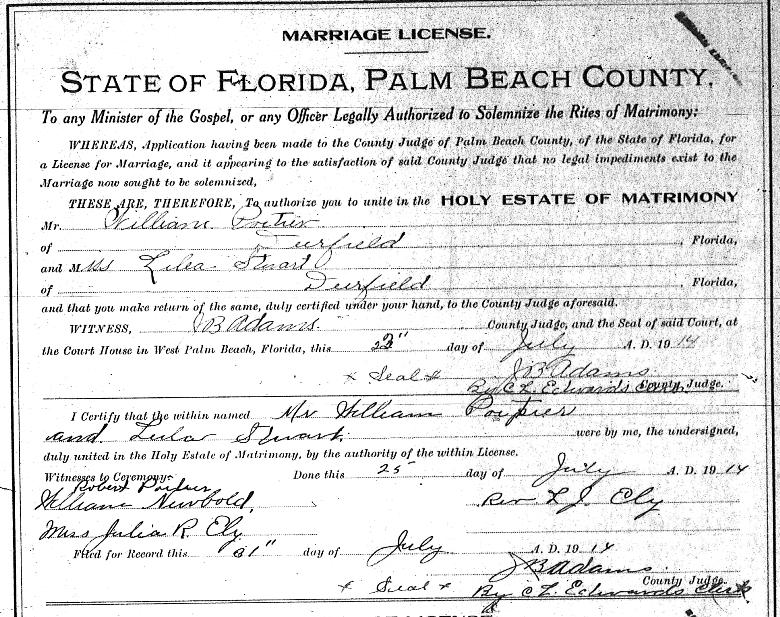 MARRIAGE LICENSE.
STATE OF FLORIDA, PALM BEACH COUNTY.
To any Minister of the Gospel, or any Officer Legally Authorized to Solemnize the Rites of Matrimony:
WHEREAS, Application having been made to the County Judge of Palm Beach County, of the State of Florida, for
a License for Marriage, and it appearing to the satisfaction of said County Judge that no legal impediments exist to the
Marriage now sought to be solemnized,
THESE ARE, THEREFORE, To authorize you to unite in the HOLY ESTATE OF MATRIMONY
Mr. William Poitier
of Deerfield, Florida,
and Miss Lilea Stuart
of Deerfield, Florida,
and that you make return of the same, duly certified under your hand, to the County Judge aforesaid.
WITNESS, J B Adams. County Judge, and the Seal of said Court, at
the Court House in West Palm Beach, Florida, this 23" day of July A. D. 1914
x Seal x J B Adams.
By C. L. Edwards Clerk County Judge.
I Certify that the within named Mr William Poitier
and Lula Stuart were by me, the undersigned,
duly united in the Holy Estate of Matrimony, by the authority of the within License.
Witnesses to Ceremony: Done this 25 day of July A. D. 1914
Robert
William Newbold, Rev L. J. Ely
Miss Julia R. Ely
Filed for Record this 31" day of July A. D. 1914
J B Adams
x Seal x County Judge.
By C L Edwards Clerk